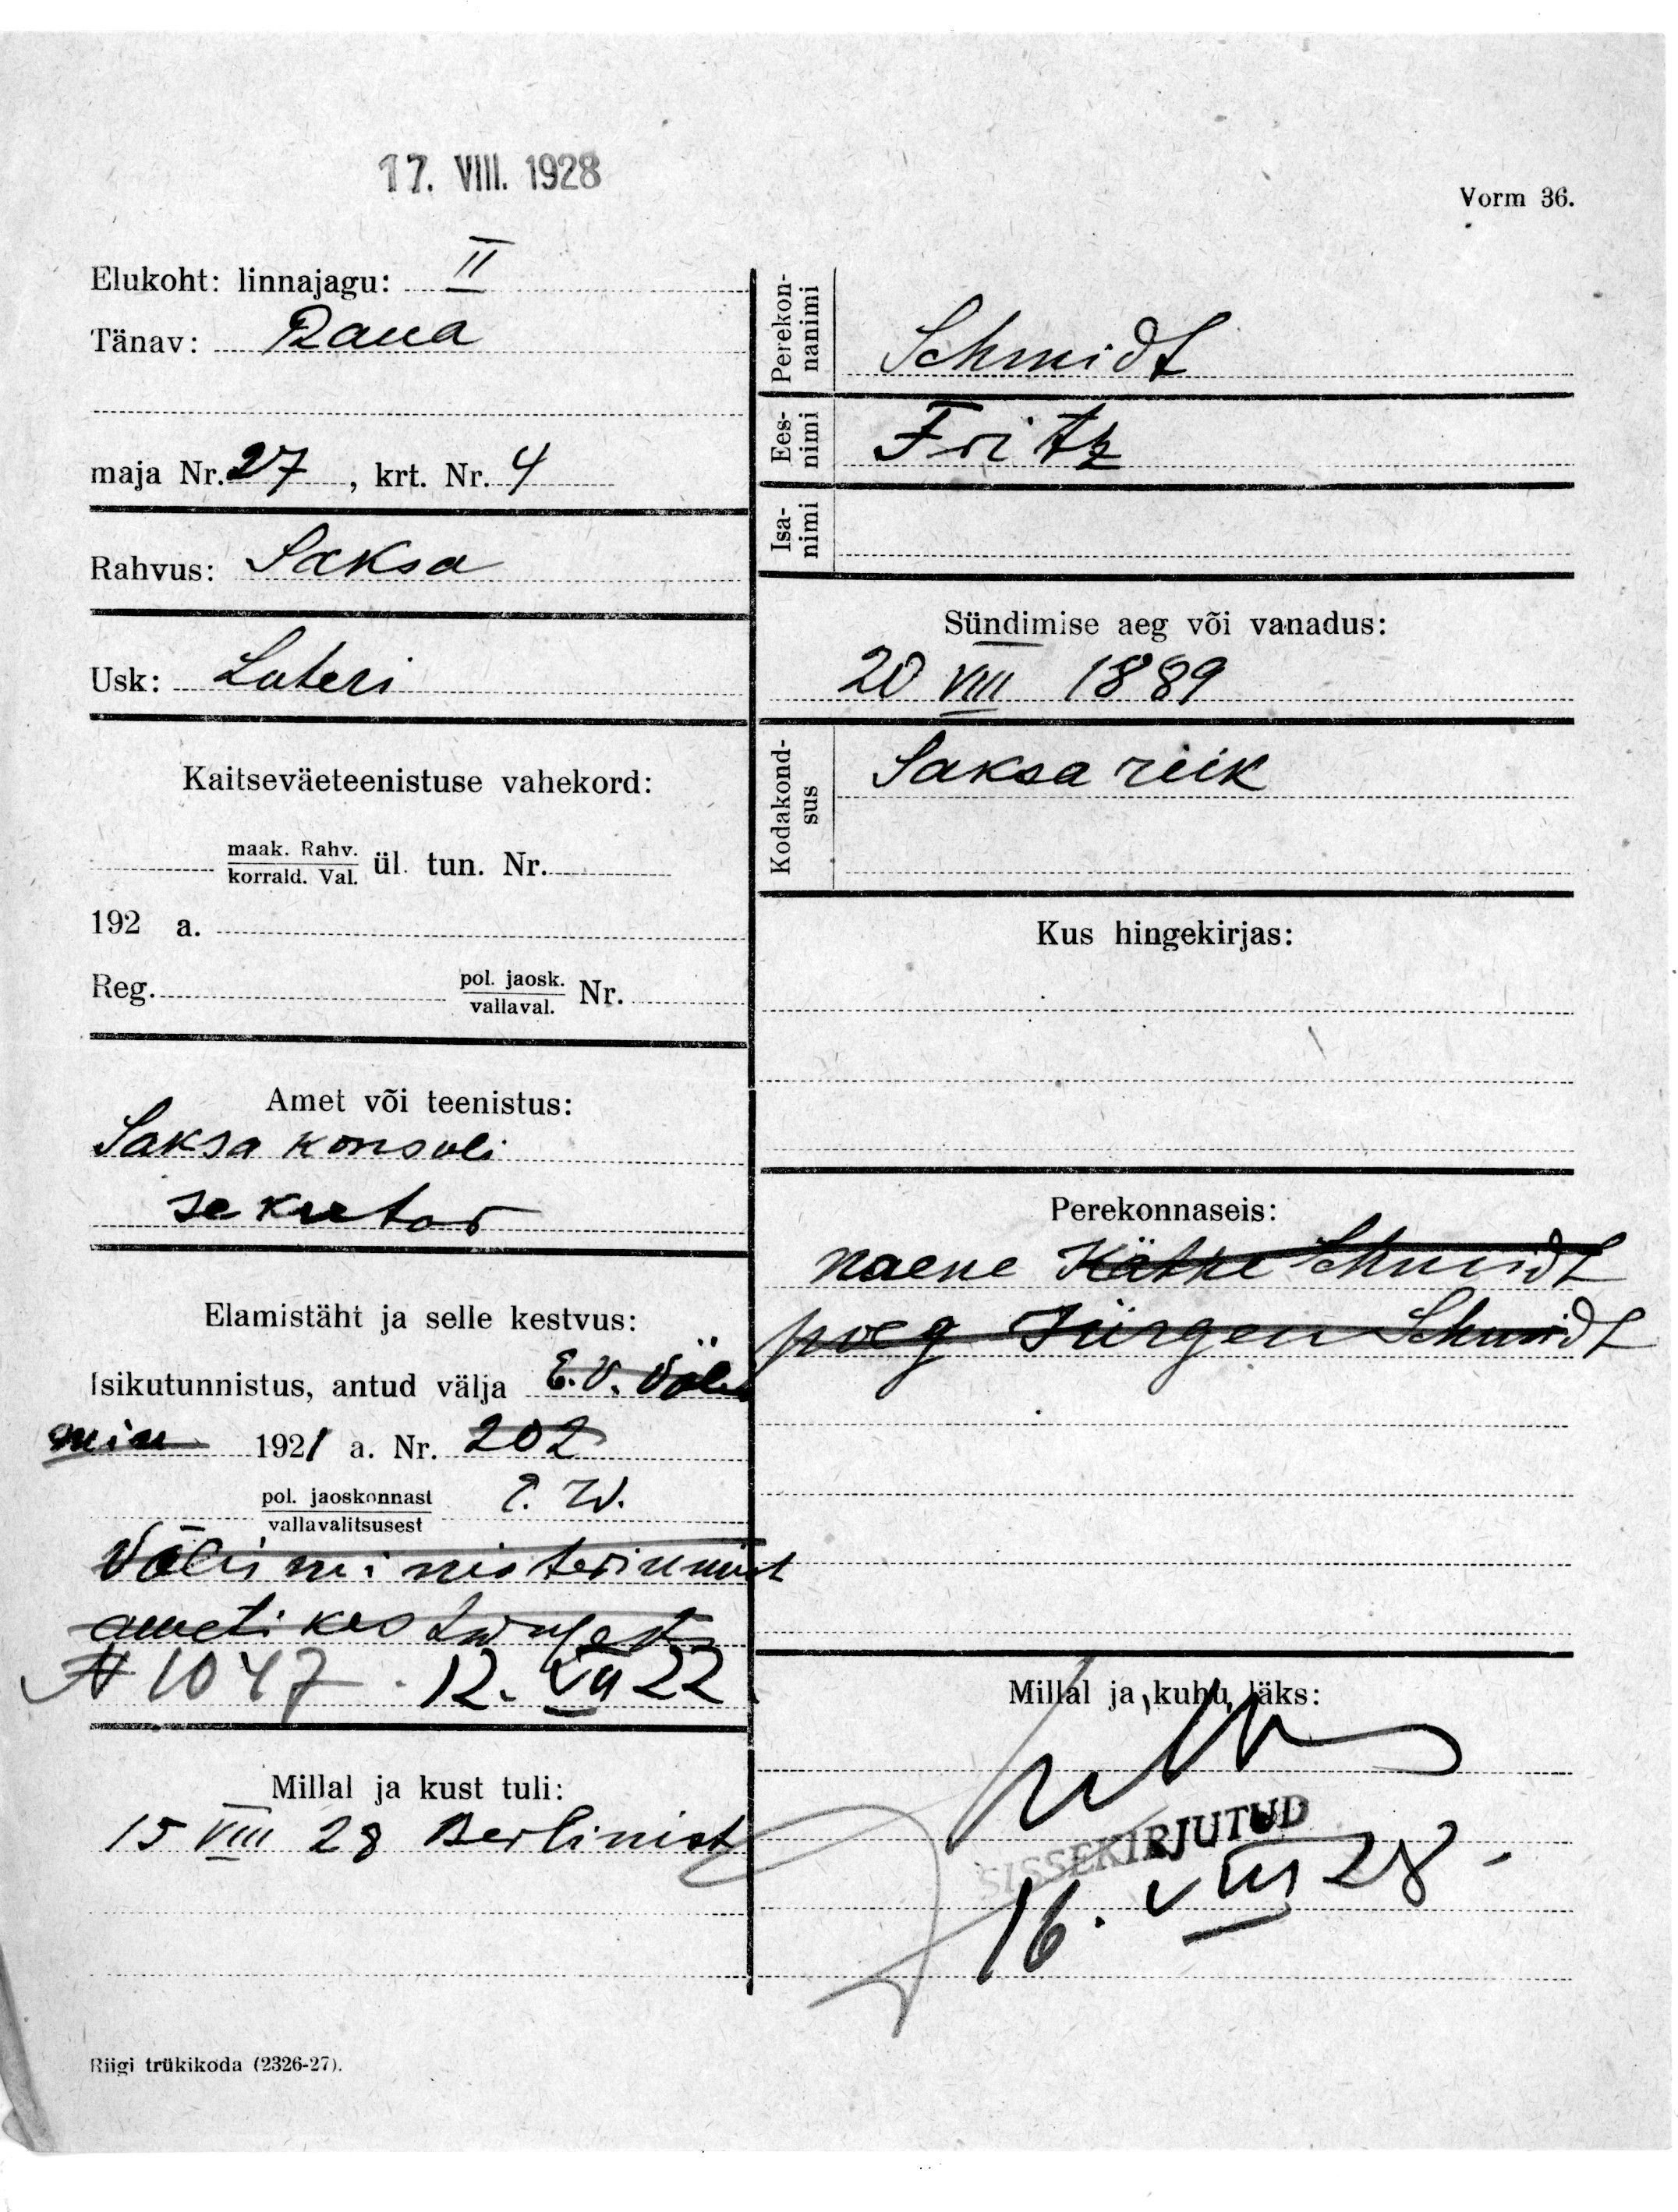 17. VIII. 1928
Vorm 36.
Elukoht: linnajagu: II
Tänav: Raua
maja Nr. 27, krt. Nr. 4
Rahvus: Saksa
Usk: Luteri
Kaitseväeteenistuse vahekord:
maak. Rahv.
korrald. Val. ül. tun. Nr.
192 a.
Reg. pol. jaosk. Nr.
vallaval.
Amet või teenistus:
Saksa konsuli
sekretar
Elamistäht ja selle kestvus:
Isikutunnistus, antud välja E.V. Välis
min 1921 a. Nr. 202
pol. jaoskonnast
vallavalitsusest
Välisministeriumist
ameti kestvusest
N 1047 . 12. VII 22
Millal ja kust tuli:
15 VIII 28 Berlinist
Riigi trükikoda (2326-27).
Perekon-
nanimi
Schmidt
Ees-
nimi
Fritz
Isa-
nimi
Sündimise aeg või vanadus:
20 VIII 1889
Kodakond-
sus
Saksa riik
Kus hingekirjas:
Perekonnaseis:
naene Käthe Schmidt
poeg Jürgen Schmidt
Millal ja kuhu läks:
SISSEKIRJUTUD
16. VIII 28